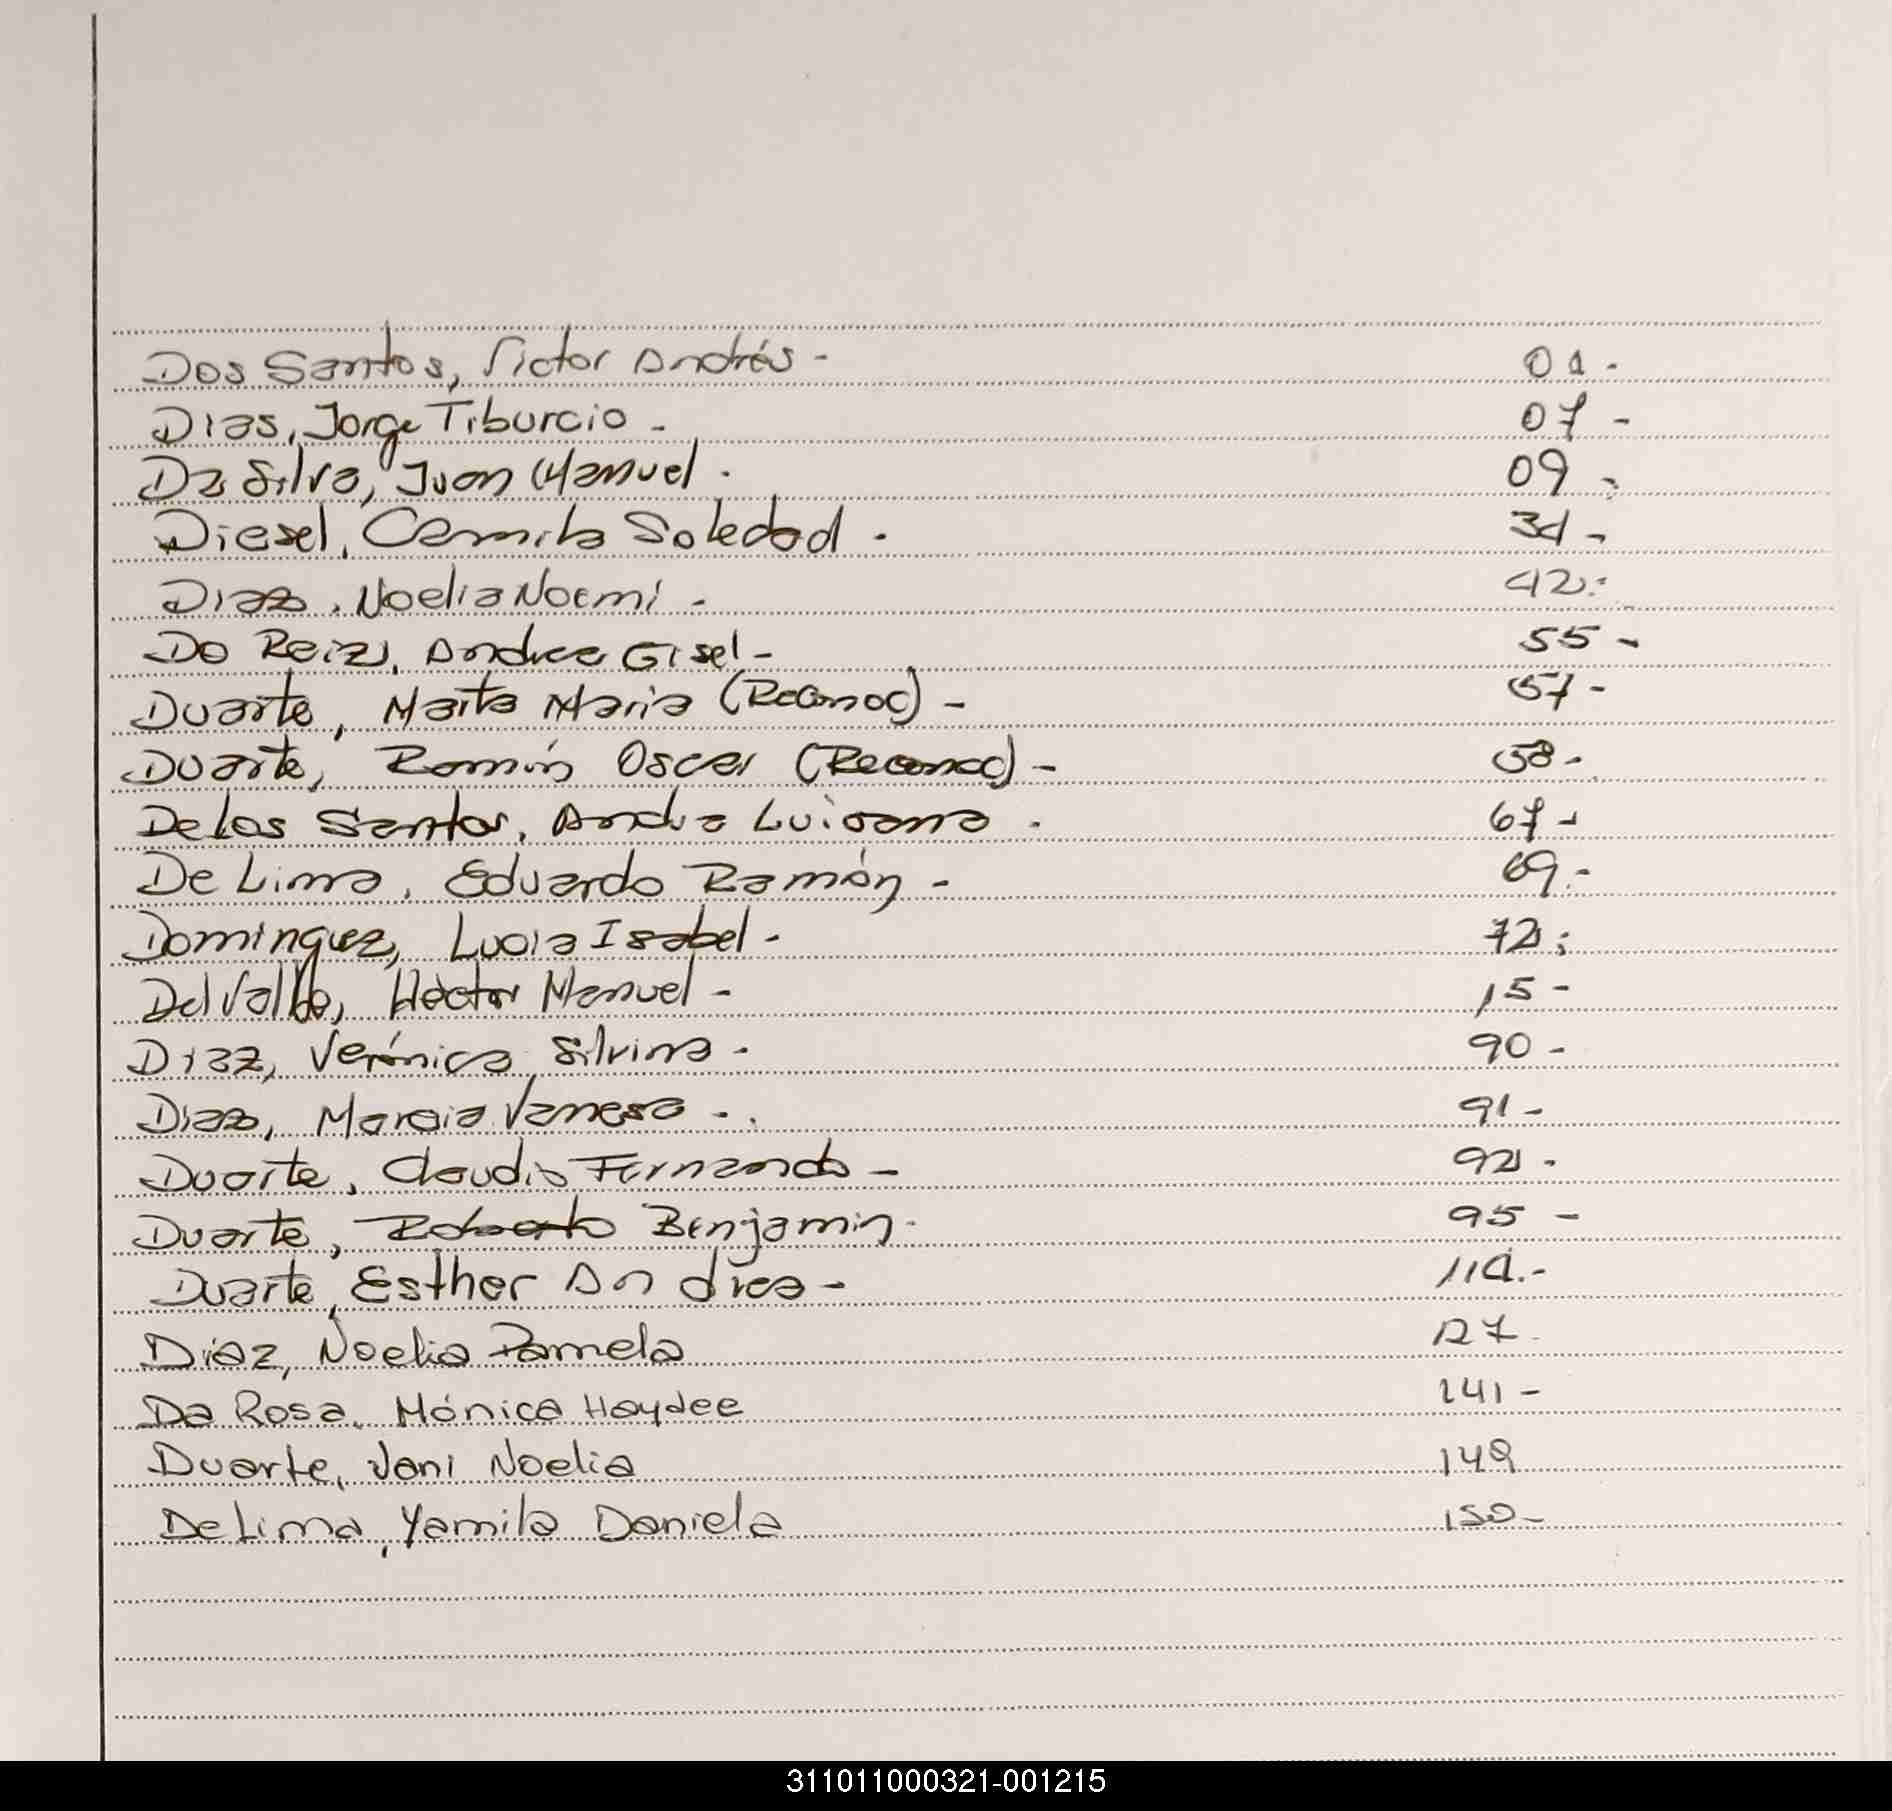 Dos Santos, Victor Andrés - 01 -
Dias, Jorge Tiburcio - 07 -
Da Silva, Juan Manuel - 09 -
Diesel, Camila Soledad - 31 -
Diaz, Noelia Noemi - 42 -
Do Reiz, Andrea Gisel - 55 -
Duarte, Marta Maria (Reconoc) - 57 -
Duarte, Ramón Oscar (Reconoc) - 58 -
De los Santos, Luisana - 67 -
De Lima, Eduardo Ramón - 69 -
Dominguez, Lucia Isabel - 72 -
Del Valle, Héctor Manuel - 15 -
Diaz, Verónica Silvina - 90 -
Diaz, Marcia Vanesa - 91 -
Duarte, Claudio Fernando - 92 -
Duarte, Roberto Benjamin - 95 -
Duarte, Esther Andrea -
Díaz, Noelia Pamela 127
Da Rosa, Mónica Haydee 141 -
Duarte, Noelia
De Lima, Yamila Daniela 150 -
311011000321-001215